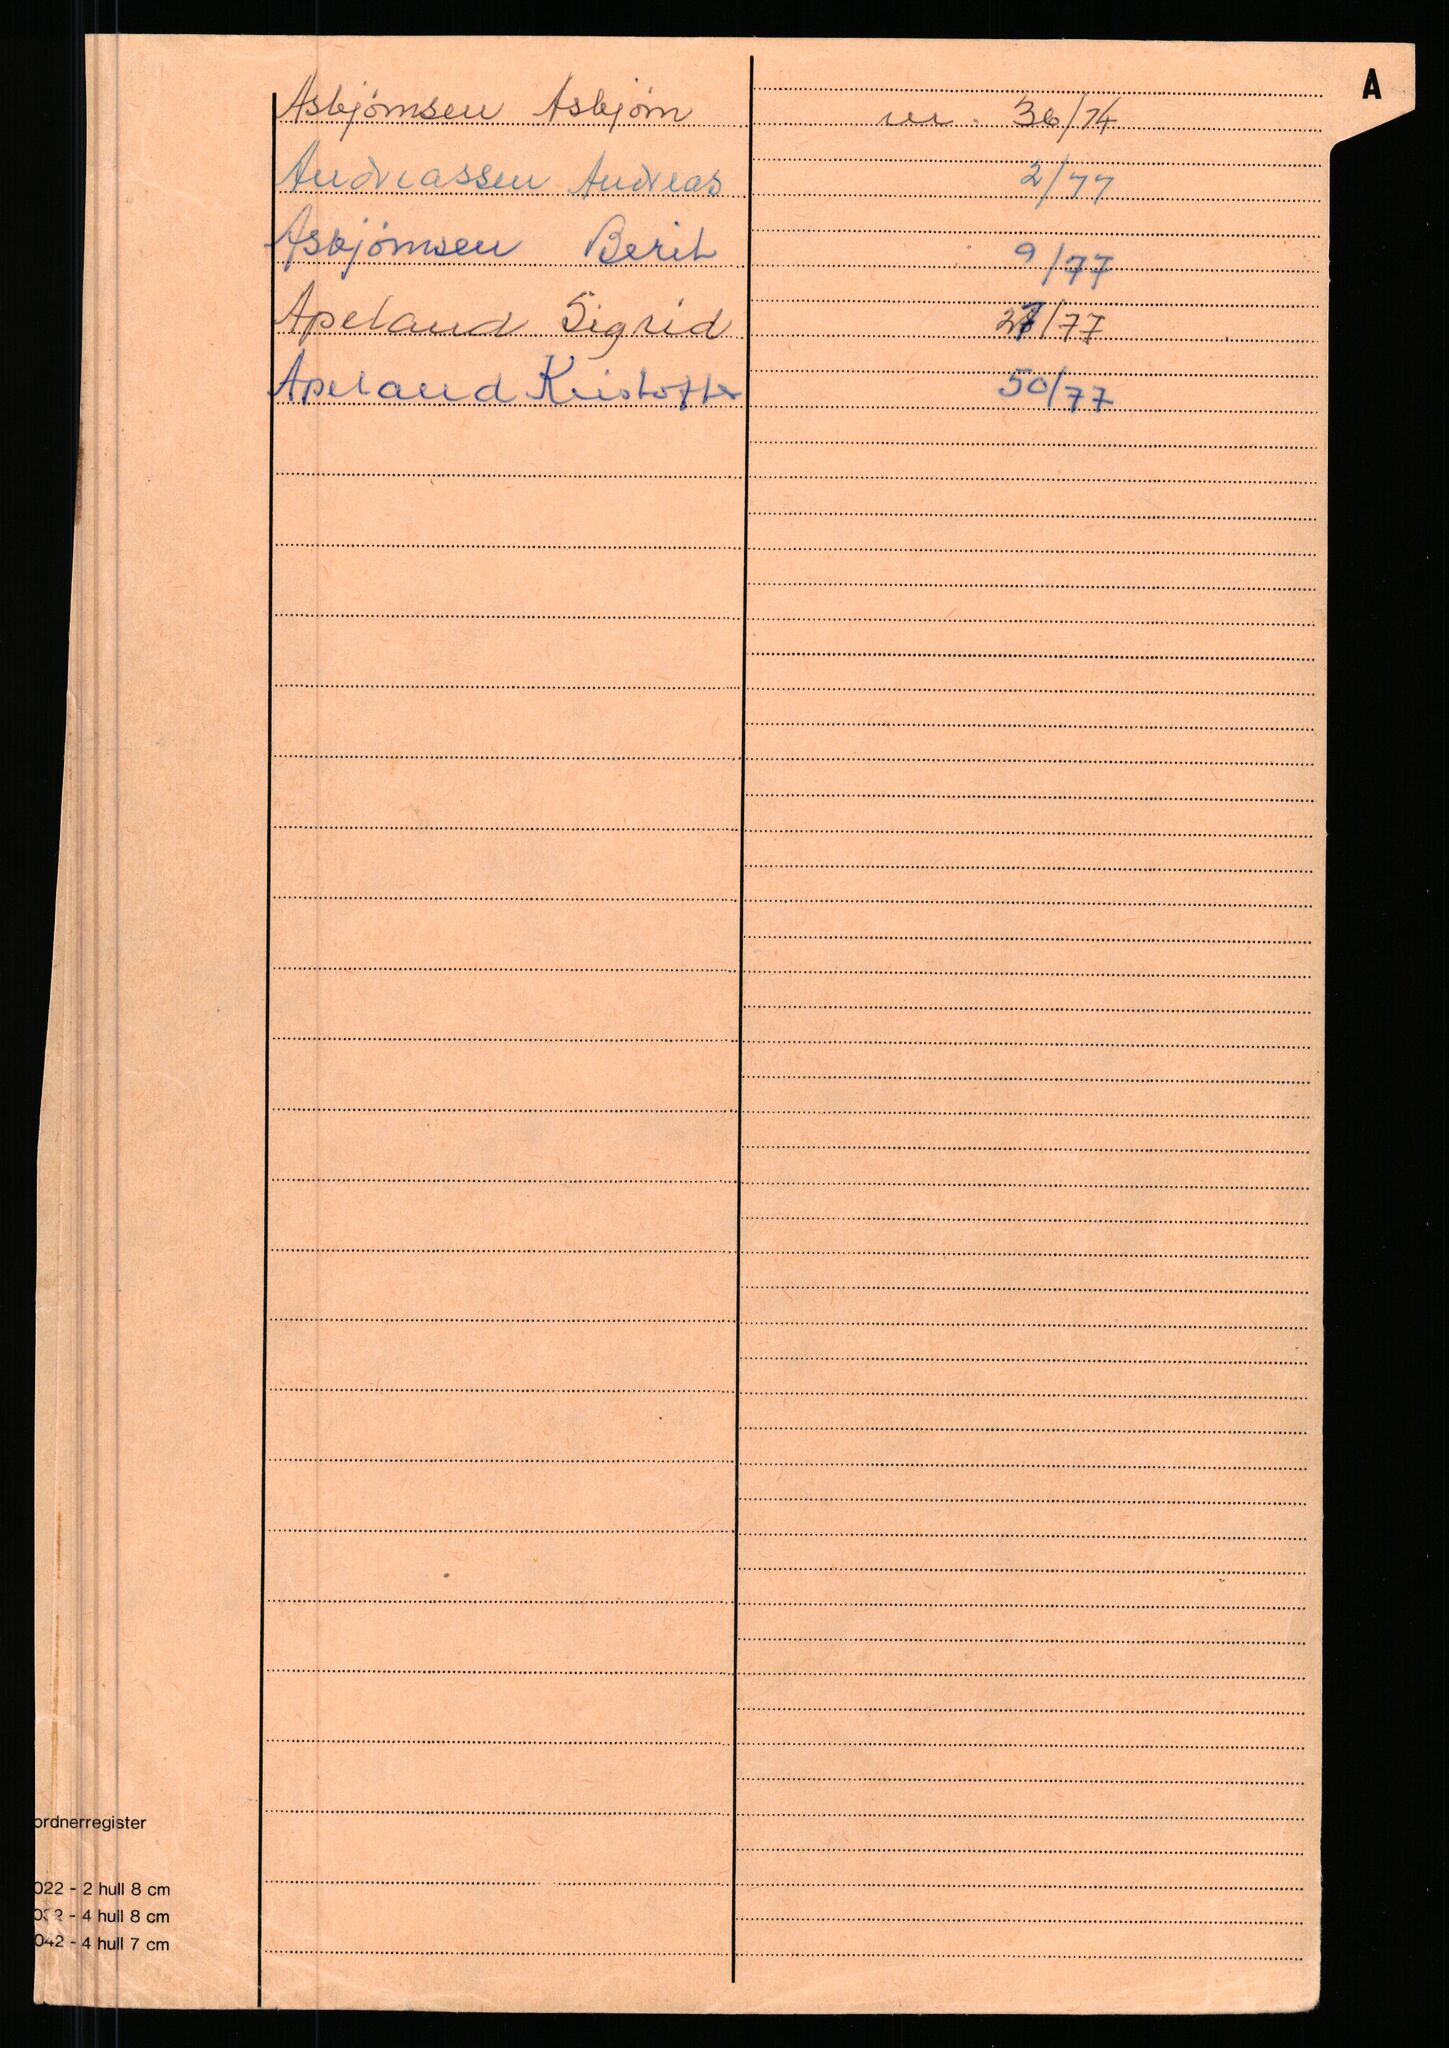 A
Asbjørnsen Asbjørn nr. 36/74
Andreassen Andreas 2/77
Asbjørnsen Berit 9/77
Apeland Sigrid 27/77
Apeland Kristoffer 50/77
ordnerregister
022 - 2 hull 8 cm
032 - 4 hull 8 cm
042 - 4 hull 7 cm